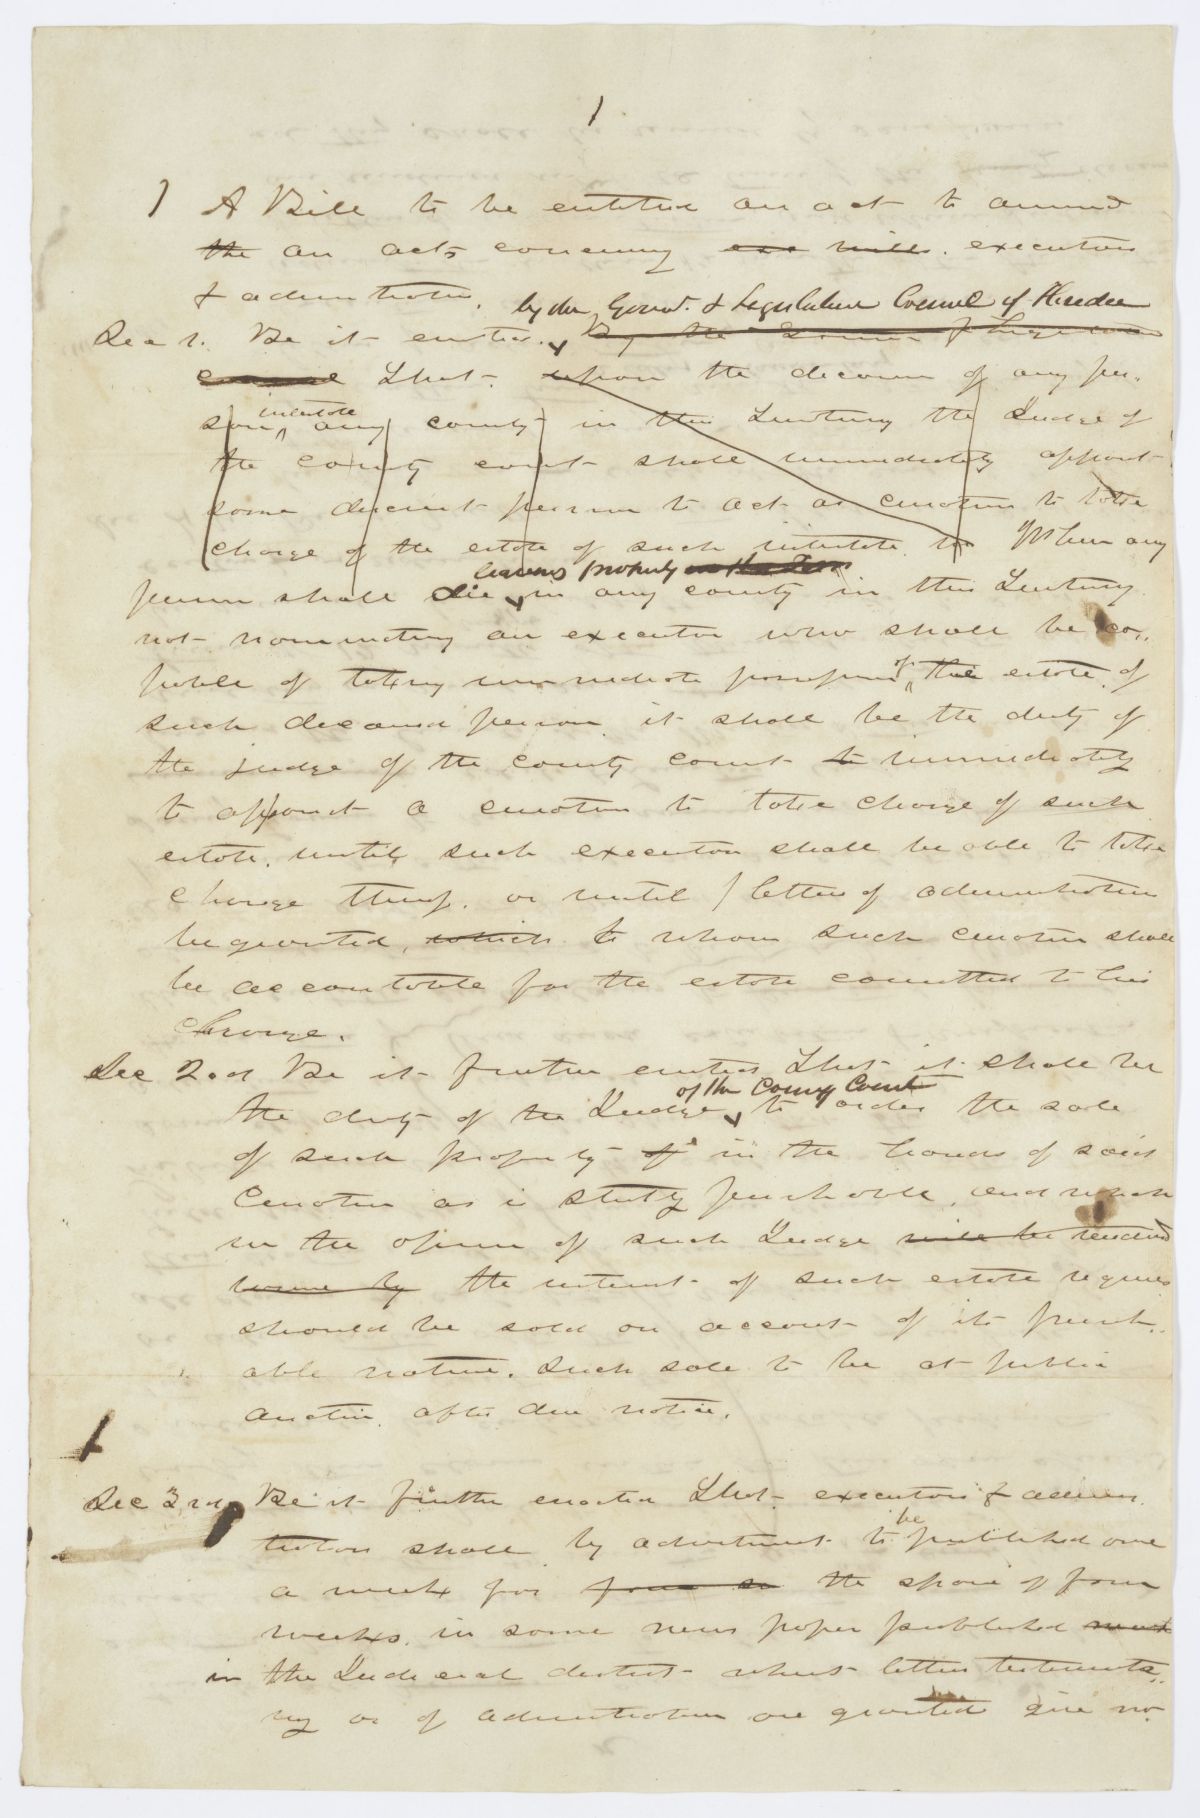 1
1 A Bill to be entitled an act to amend
the an acts concerning exe wills. executors
& administrators.
by the Govnr. & Legislative Council of Florida
Sec 1. Be it enacted. By the Governor & Legislative
council That. upon the decease of any per..
son intestate any county in this Territory the Judge of
the county court shall immediately appoint
some discreet person to act as curator to take
charge of the estate of such intestate. to When any
leaving property
person shall die in any county in this Territory
not nominating an executor who shall be ca..
pable of taking immediate possession of the estate of
such deceased person it shall be the duty of
the judge of the county court to immediately
to appoint a curator to take charge of such
estate. until such executor shall be able to take
charge thereof. or until letters of administration
be granted, which to whom such curator shall
be accountable for the estate committed to his
charge.
Sec 2nd Be it further enacted That it shall be
of the County Court
the duty of the Judge to order the sale
of such property of in the hands of said
Curator as is strictly perishable, and which
in the opinion of such Judge will be rendered
worse by the interest of such estate requires
should be sold on account of its perish..
able nature. Such sale to be at public
auction. after due notice.
Sec 3rd Be it further enacted That executors & admin
be
istrators shall by advertisment to published once
a week for four the space of four
weeks. in some news paper published
in the Judicial district where letters testamenta..
ry or of administration are granted give no